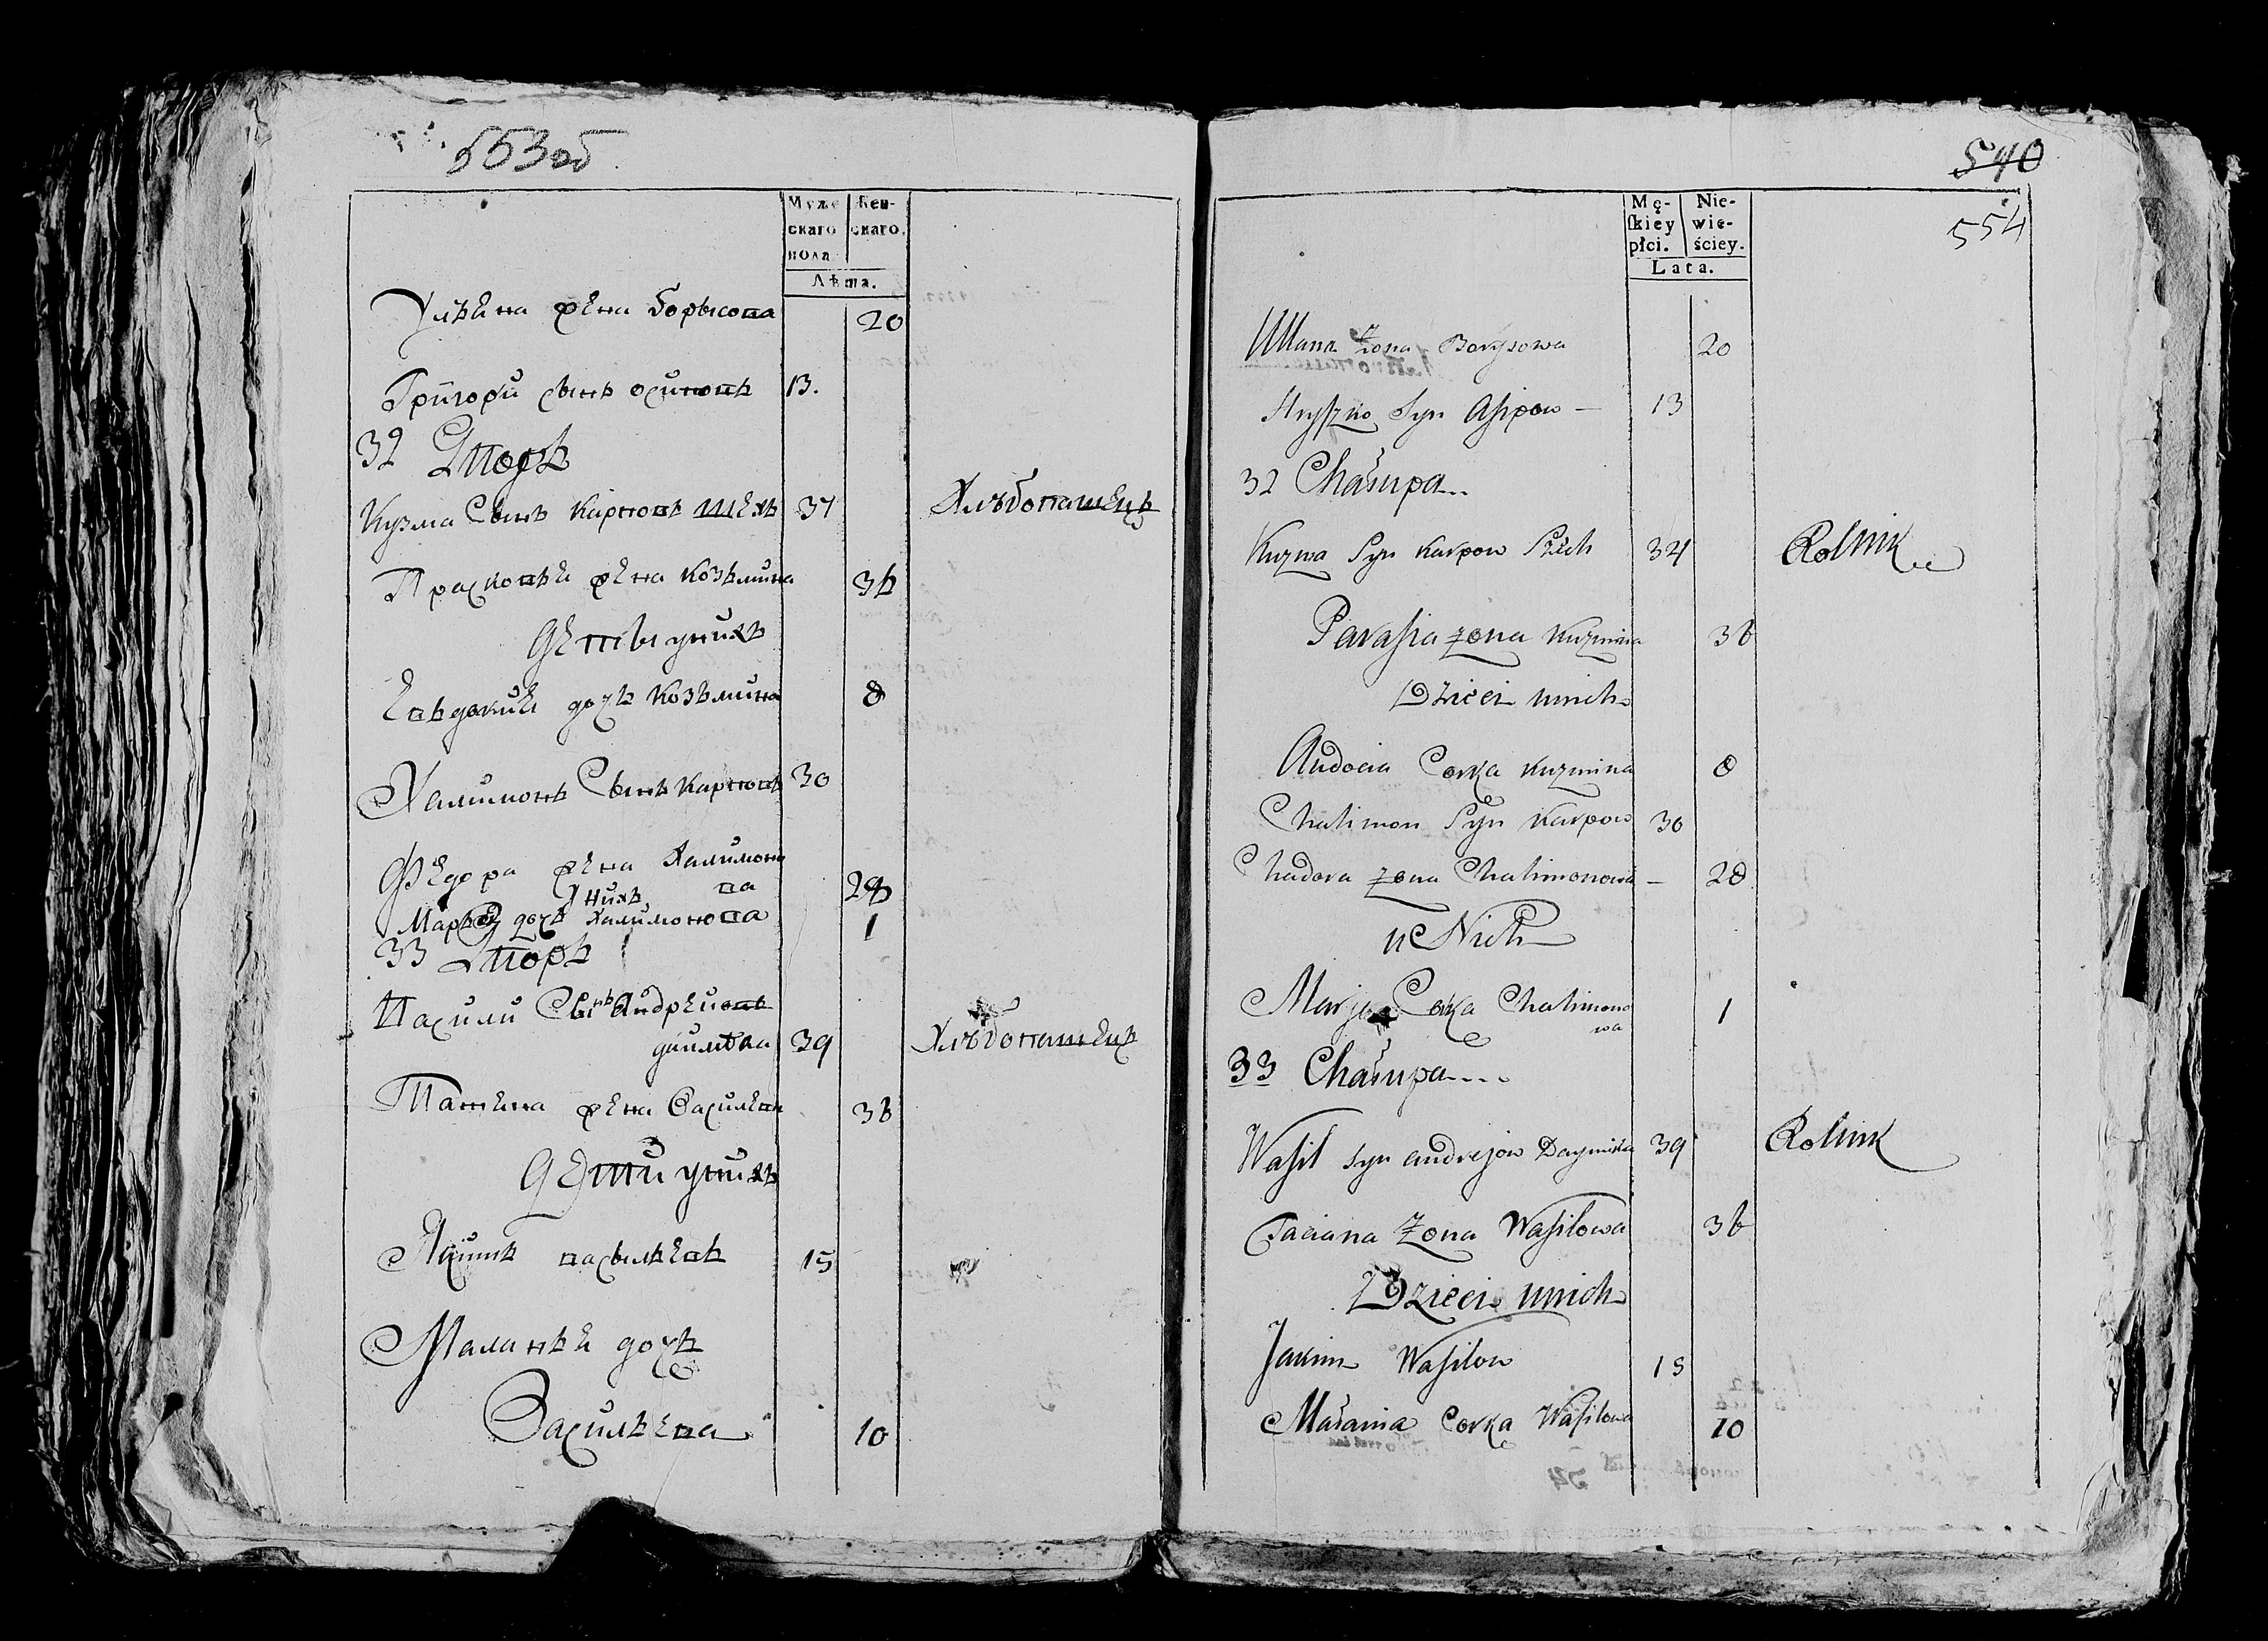 553 об
Муже
скаго
пола
Жен-
скаго.
Лѣта.
Ульяна жена борысова 20
Григори сынъ осиповъ 13.
32 Дворъ
Кузма Сынъ Карповъ шехъ 37 Хлѣбопашецъ
Прасковья жена Козьмина 36
Дети унихъ
Евъдокия дочь Козьмина 8
Халимонъ Сынъ Карповъ 30
Федора жена Халимоно
ва 28
Унихъ
Марья дочь Халимонова 1
33 Дворъ
Васили Сынъ Андреиовъ
39 Хлѣбопашецъ
Татияна жена Василева 36
Дети унихъ
Якимъ васыльевъ 15
Маланья дочь
Васильева 10
540
554
Mę-
ſkiey
płci.
Nie-
wie-
ściey.
Lata.
Ullana Zona Borysowa 20
Hryszko Syn Asipow — 13
32 Chałupa..
Kuzma Syn Karpow Szech 34 Rolnik
Parasia zona Kuzmina 36
Dzieci unich
Audocia Corka Kuzmina 8
Chalimon Syn Karpow 30
Chadora zona Chalimonowa — 28
u Nich
Marja Corka Chalimono
wa 1
33 Chałupa....
Wasil syn andrejow Daymista 39 Rolnik
Taciana Zona Wasilowa 36
Dzieci unich
Jakim Wasilow 15
Małania Corka Wasilowa 10